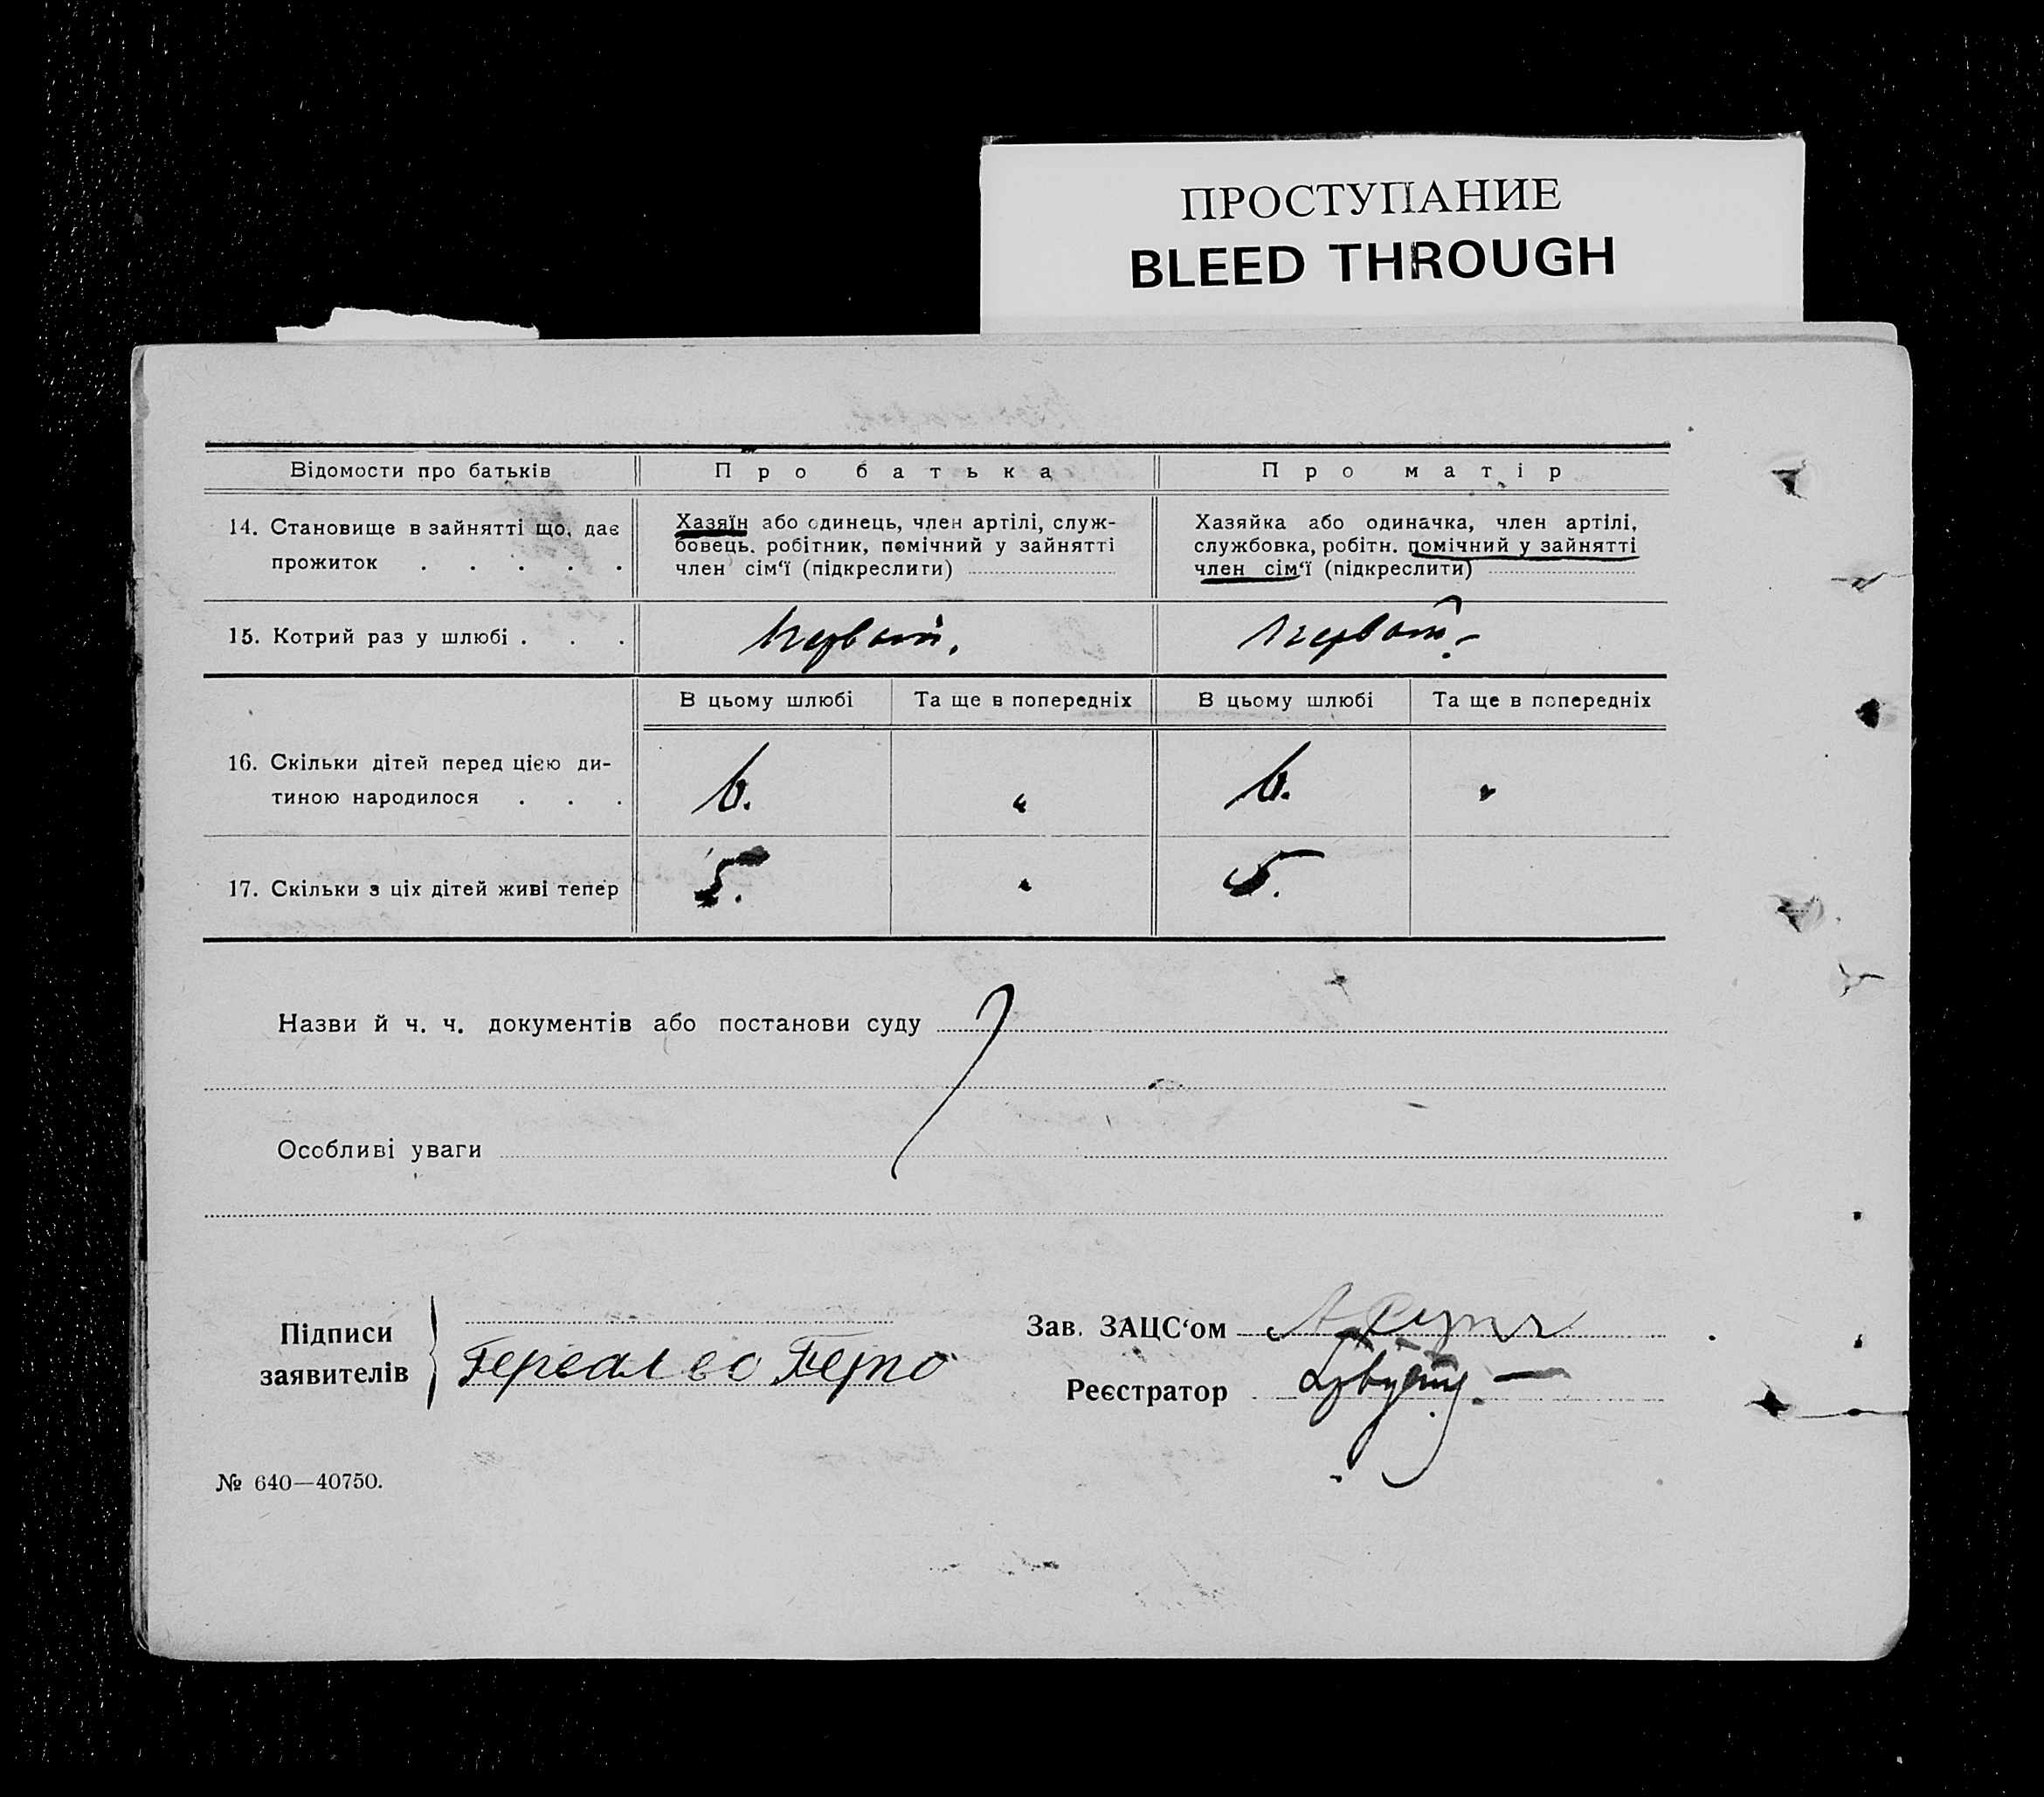 ПРОСТУПАНИЕ
BLEED THROUGH
Відомости про батьків
Про батька
Про матір
14. Становище в зайнятті що, дає
прожиток . . . . .
Хазяїн або одинець, член артілі, служ-
бовець. робітник, помічний у зайнятті
член сім‘ї (підкреслити)
Хазяйка або одиначка, член артілі,
службовка, робітн. помічний у зайнятті
член сім‘ї (підкреслити)
15. Котрий раз у шлюбі . . .
первий.
первий.
В цьому шлюбі
Та ще в попередніх
В цьому шлюбі
Та ще в попередніх
16. Скільки дітей перед цією ди-
тиною народилося . . .
6.
"
6.
"
17. Скільки з ціх дітей живі тепер
5.
"
5.
Назви й ч. ч. документів або постанови суду
Особливі уваги
Підписи
заявителів
Зав. ЗАЦС‘ом
Реєстратор
№ 640—40750.